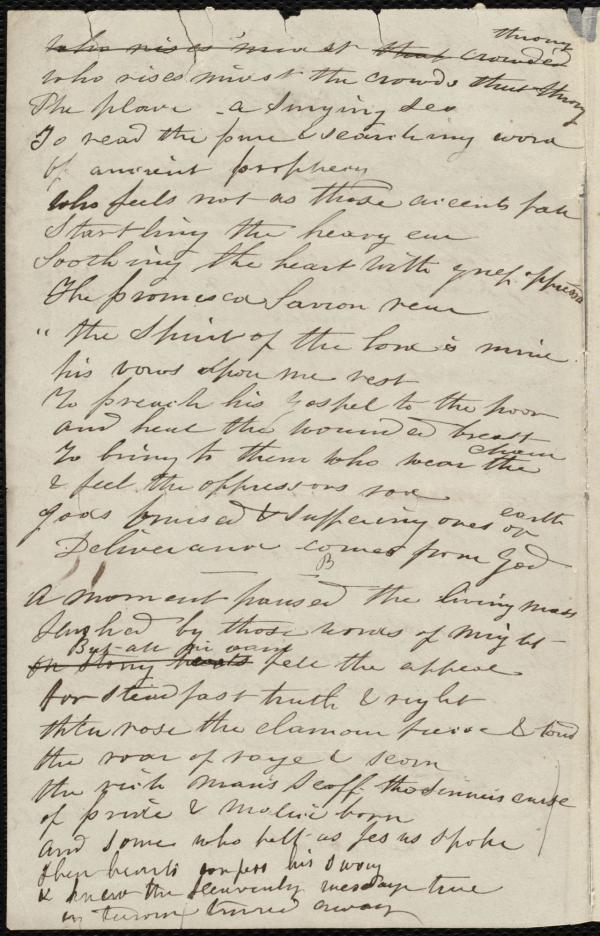 throng
Who rises mid st that crowded
who rises midst the crowds that throng
The place - a singing sea
To read the pure & searching word
of ancient prophecy
Who feels not as those accents fall
Startling the heavy ear
Soothing the heart with grief oppressed
The promised Savior near
" the Spirit of the Lord is mine
his vows upon me rest
To preach his gospel to the poor
and heal the wounded breast
To bring to them who wear the chain
& feel the oppressors rod
gods bruised & suffering ones of earth
Deliverance comes from God
B
A moment paused the living mass
Hushed by those words of might
But all in vain
on stony hearts fell the appeal
For steadfast truth & right
then rose the clamour fierce & loud
the roar of rage & scorn
the rich mans scoff. the sinners curse
of pride & malice born
and some who felt as Jesus spoke
their hearts confess his sway
& knew the heavenly message true
in turned away